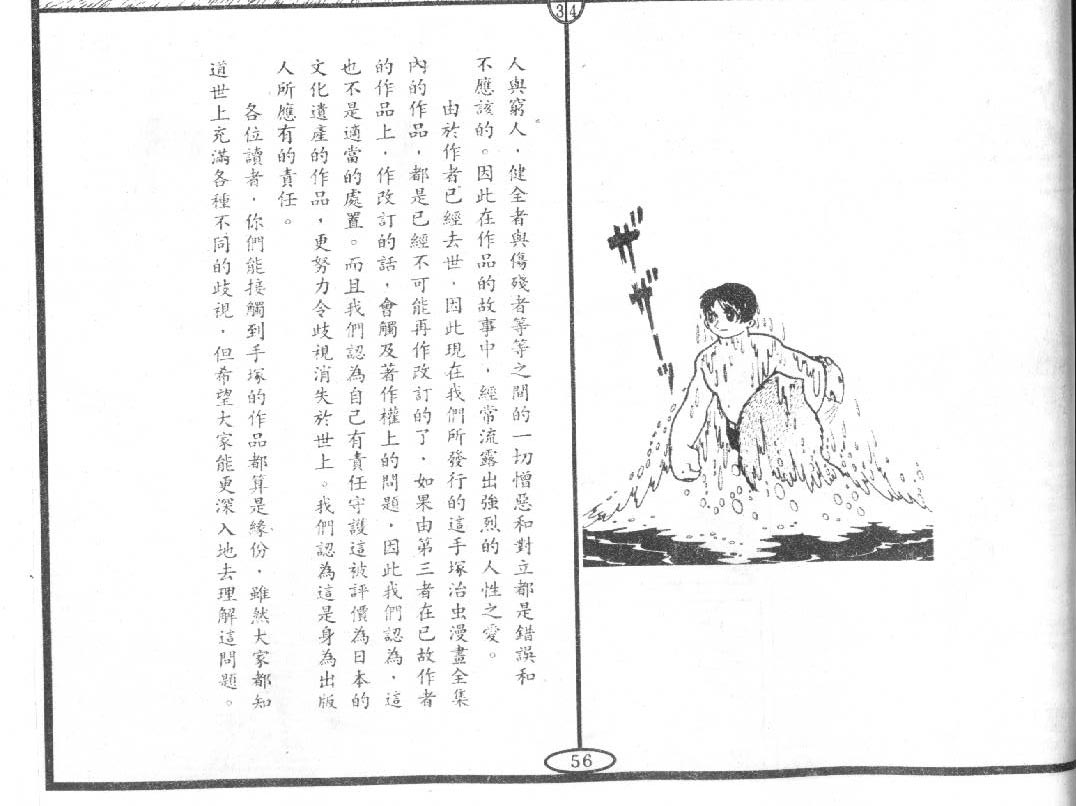 34
人與窮人，健全者與傷殘者等等之間的一切憎惡和對立都是錯誤和
不應該的。因此在作品的故事中，經常流露出強烈的人性之愛。
由於作者已經去世，因此現在我們所發行的這手塚治虫漫畫全集
內的作品，都是已經不可能再作改訂的了，如果由第三者在已故作者
的作品上，作改訂的話，會觸及著作權上的問題，因此我們認為，這
也不是適當的處置。而且我們認為自己有責任守護這被評價為日本的
文化遺產的作品，更努力令歧視消失於世上。我們認為這是身為出版
人所應有的責任。
各位讀者，你們能接觸到手塚的作品都算是緣份，雖然大家都知
道世上充滿各種不同的歧視，但希望大家能更深入地去理解這問題。
ザザーッ
56